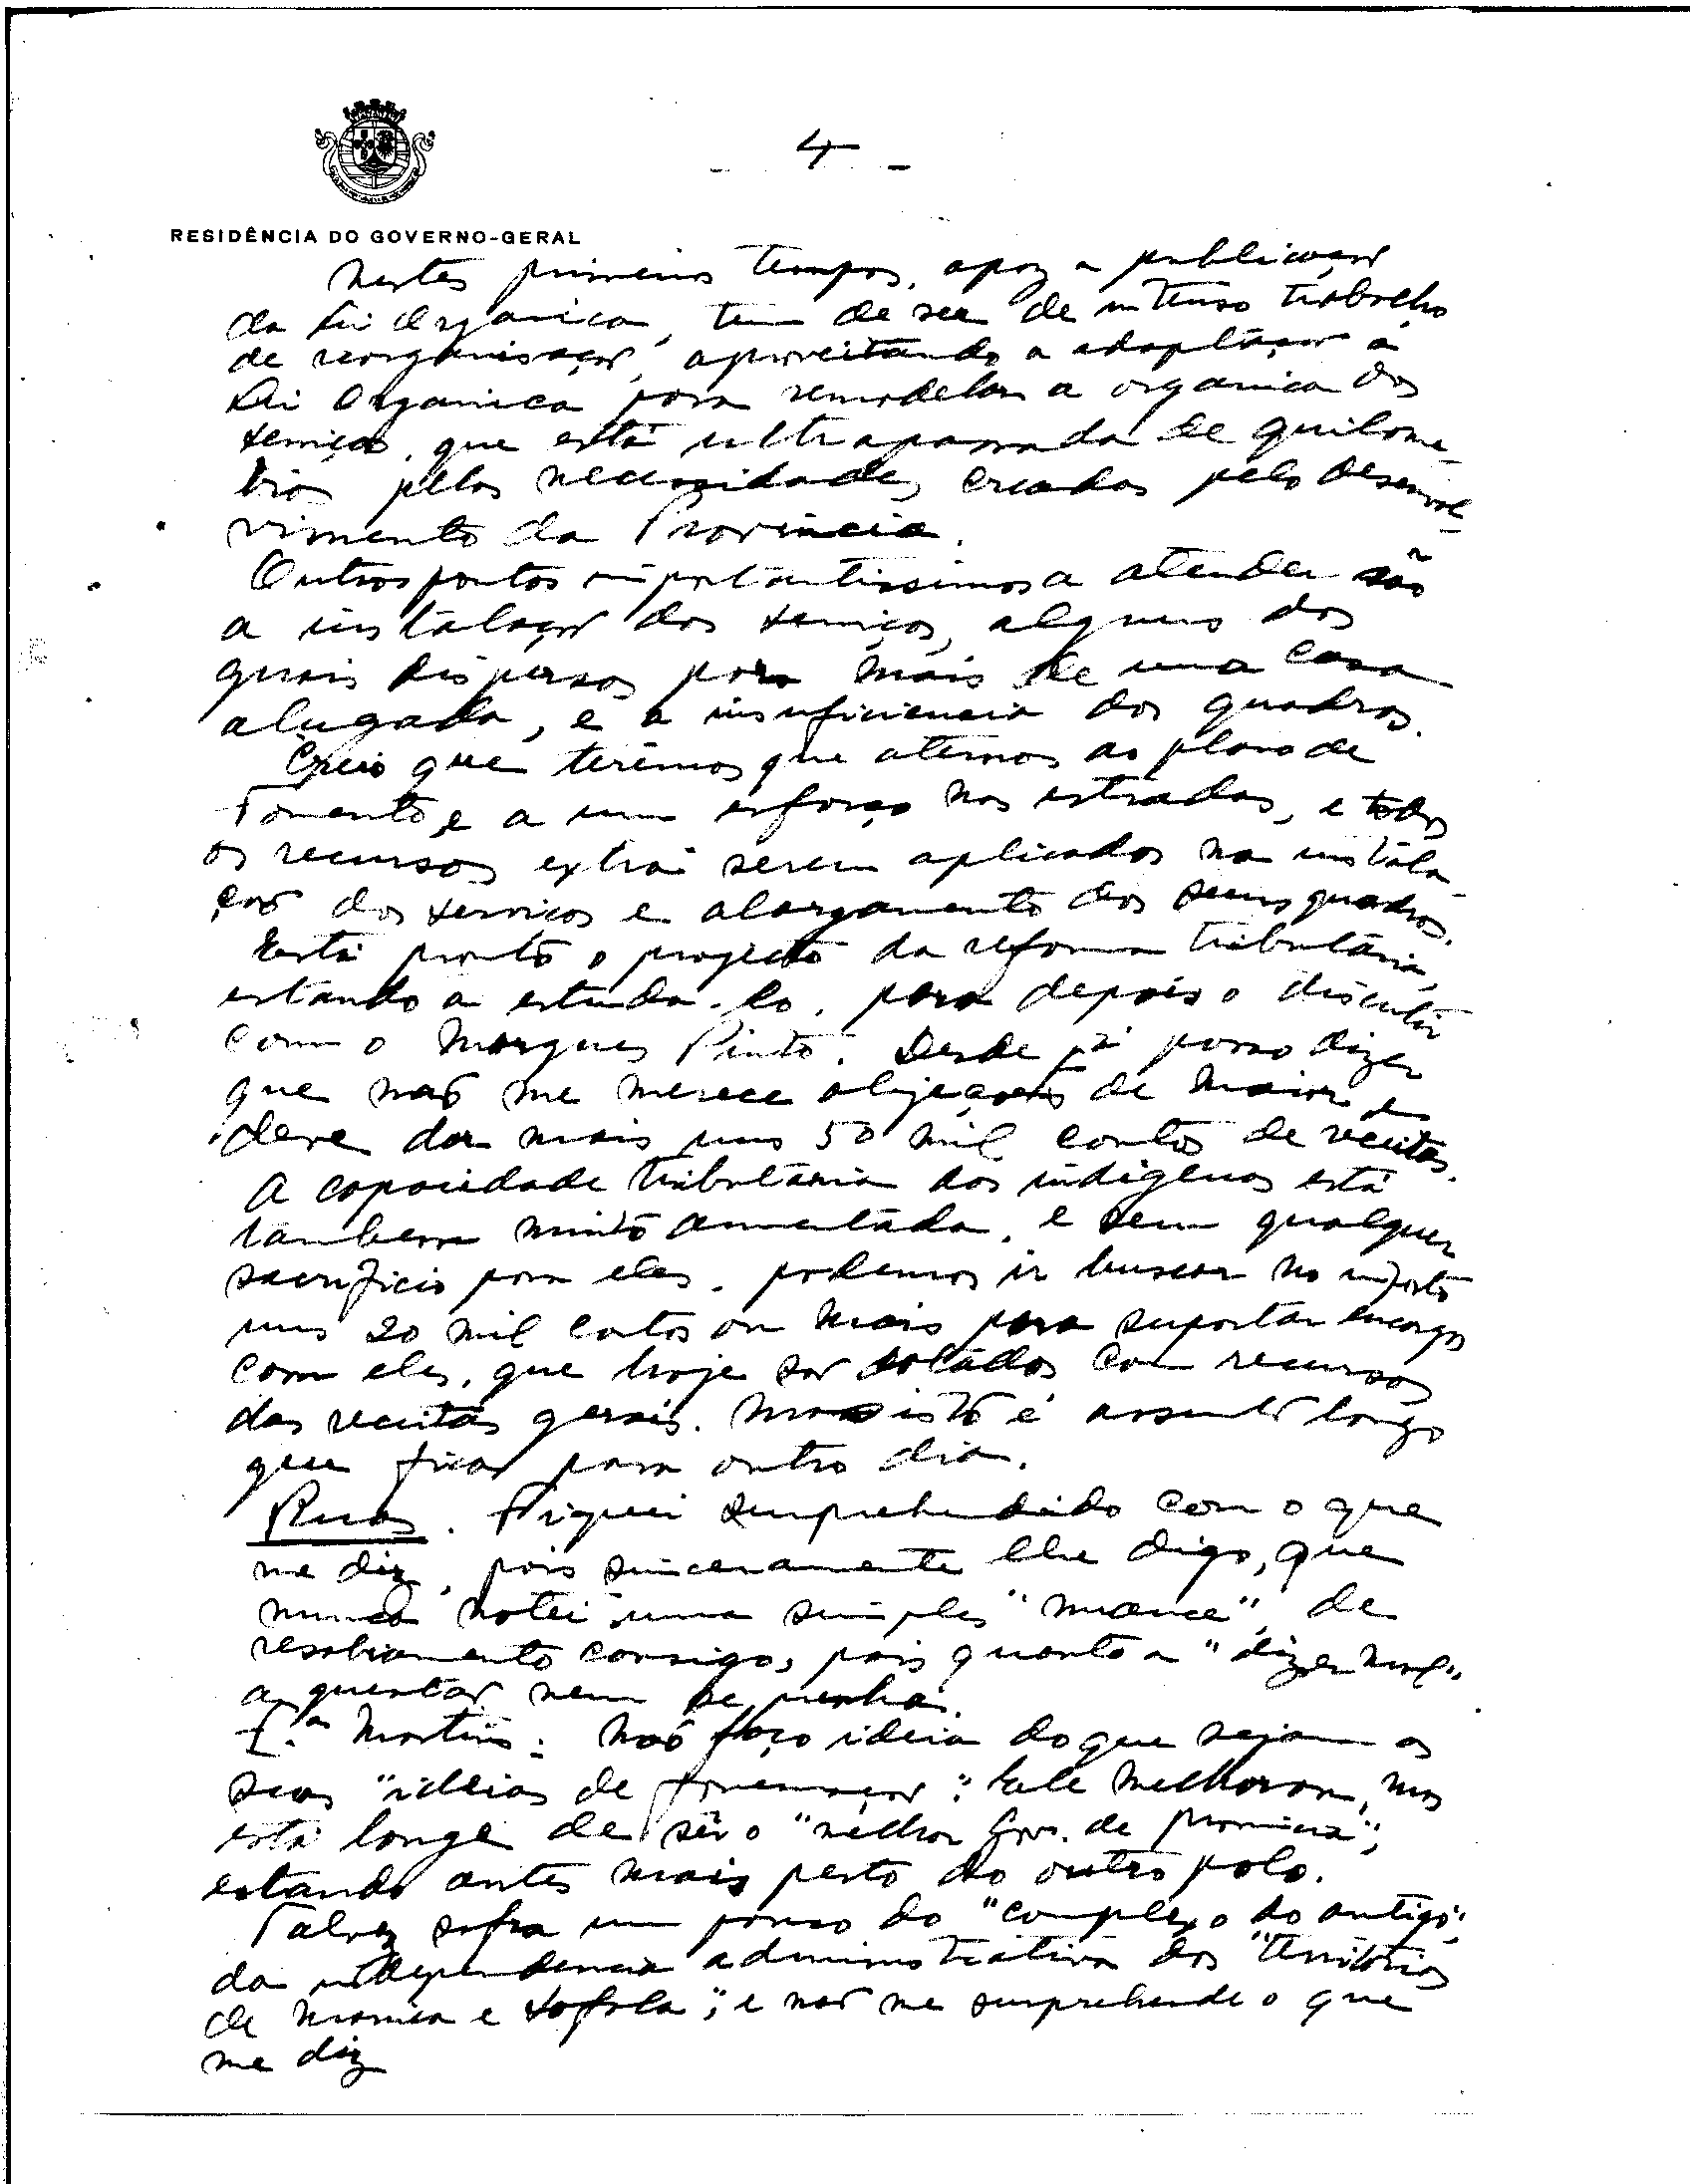 - 4 -
RESIDÊNCIA DO GOVERNO-GERAL
Nestes primeiros tempos, apoz a publicação
da Lei Organica, tem de ser de intenso trabalho
de reorganisação, aproveitando a adaptação á
Lei Organica para remodelar a organica dos
serviços, que está ultrapassada de quilome-
tros pelas necessidades criadas pelo desenvol-
vimento da Provincia.
Outros pontos importantissimos a atender são
a instalação dos serviços, alguns dos
quais dispersos por mais de uma casa
alugada, e a insuficiencia dos quadros.
Creio que teremos que aternos ao plano de
Fomento, e a um esforço nas estradas, e todos
os recursos extra serem aplicados na instala-
ção dos serviços e alargamento dos seus quadros.
Está pronto o projecto da reforma tributária,
estando a estuda-lo, para depois o discutir
com o Marques Pinto. Desde já posso dizer
que não me merece objeções de maior e
deve dar mais uns 50 mil contos de receitas.
A capacidade tributária dos indigenas está
tambem muito aumentada, e sem qualquer
sacrificio para eles, podemos ir buscar no imposto
uns 20 mil contos ou mais para suportar encargos
com eles, que hoje são dotados com recursos
das receitas gerais. Mas isto é assunto longo
que ficar para outro dia.
Ruas. Fiquei surprehendido com o que
me diz, pois sinceramente lhe digo, que
nunca notei uma simples "nuance" de
resabiamento consigo, pois quanto a "dizer mal"
a questão nem se punha.
F.ª Martins: Não faço ideia do que sejam as
suas "ideias de governação". Ele melhorou, mas
está longe de ser o "melhor Gov. de provincia",
estando antes mais perto do outro polo.
Talvez sofra um pouco do "complexo do antigo",
da independencia administrativa dos "territórios
de Manica e Sofala", e não me surprehende o que
me diz